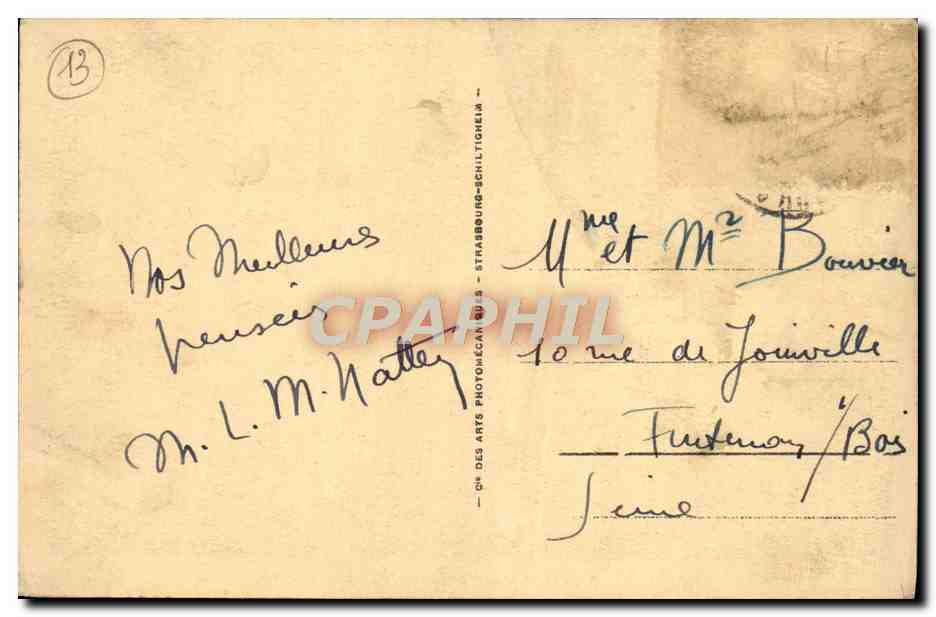 13
Nos Meilleures
pensées
M. L. M.
CPAPHIL
— Cie DES ARTS PHOTOMÉCANIQUES - STRASBOURG-SCHILTIGHEIM —
Mme et Mr Bouvier
10 rue de Joinville
Fontenay s/ Bois
Seine